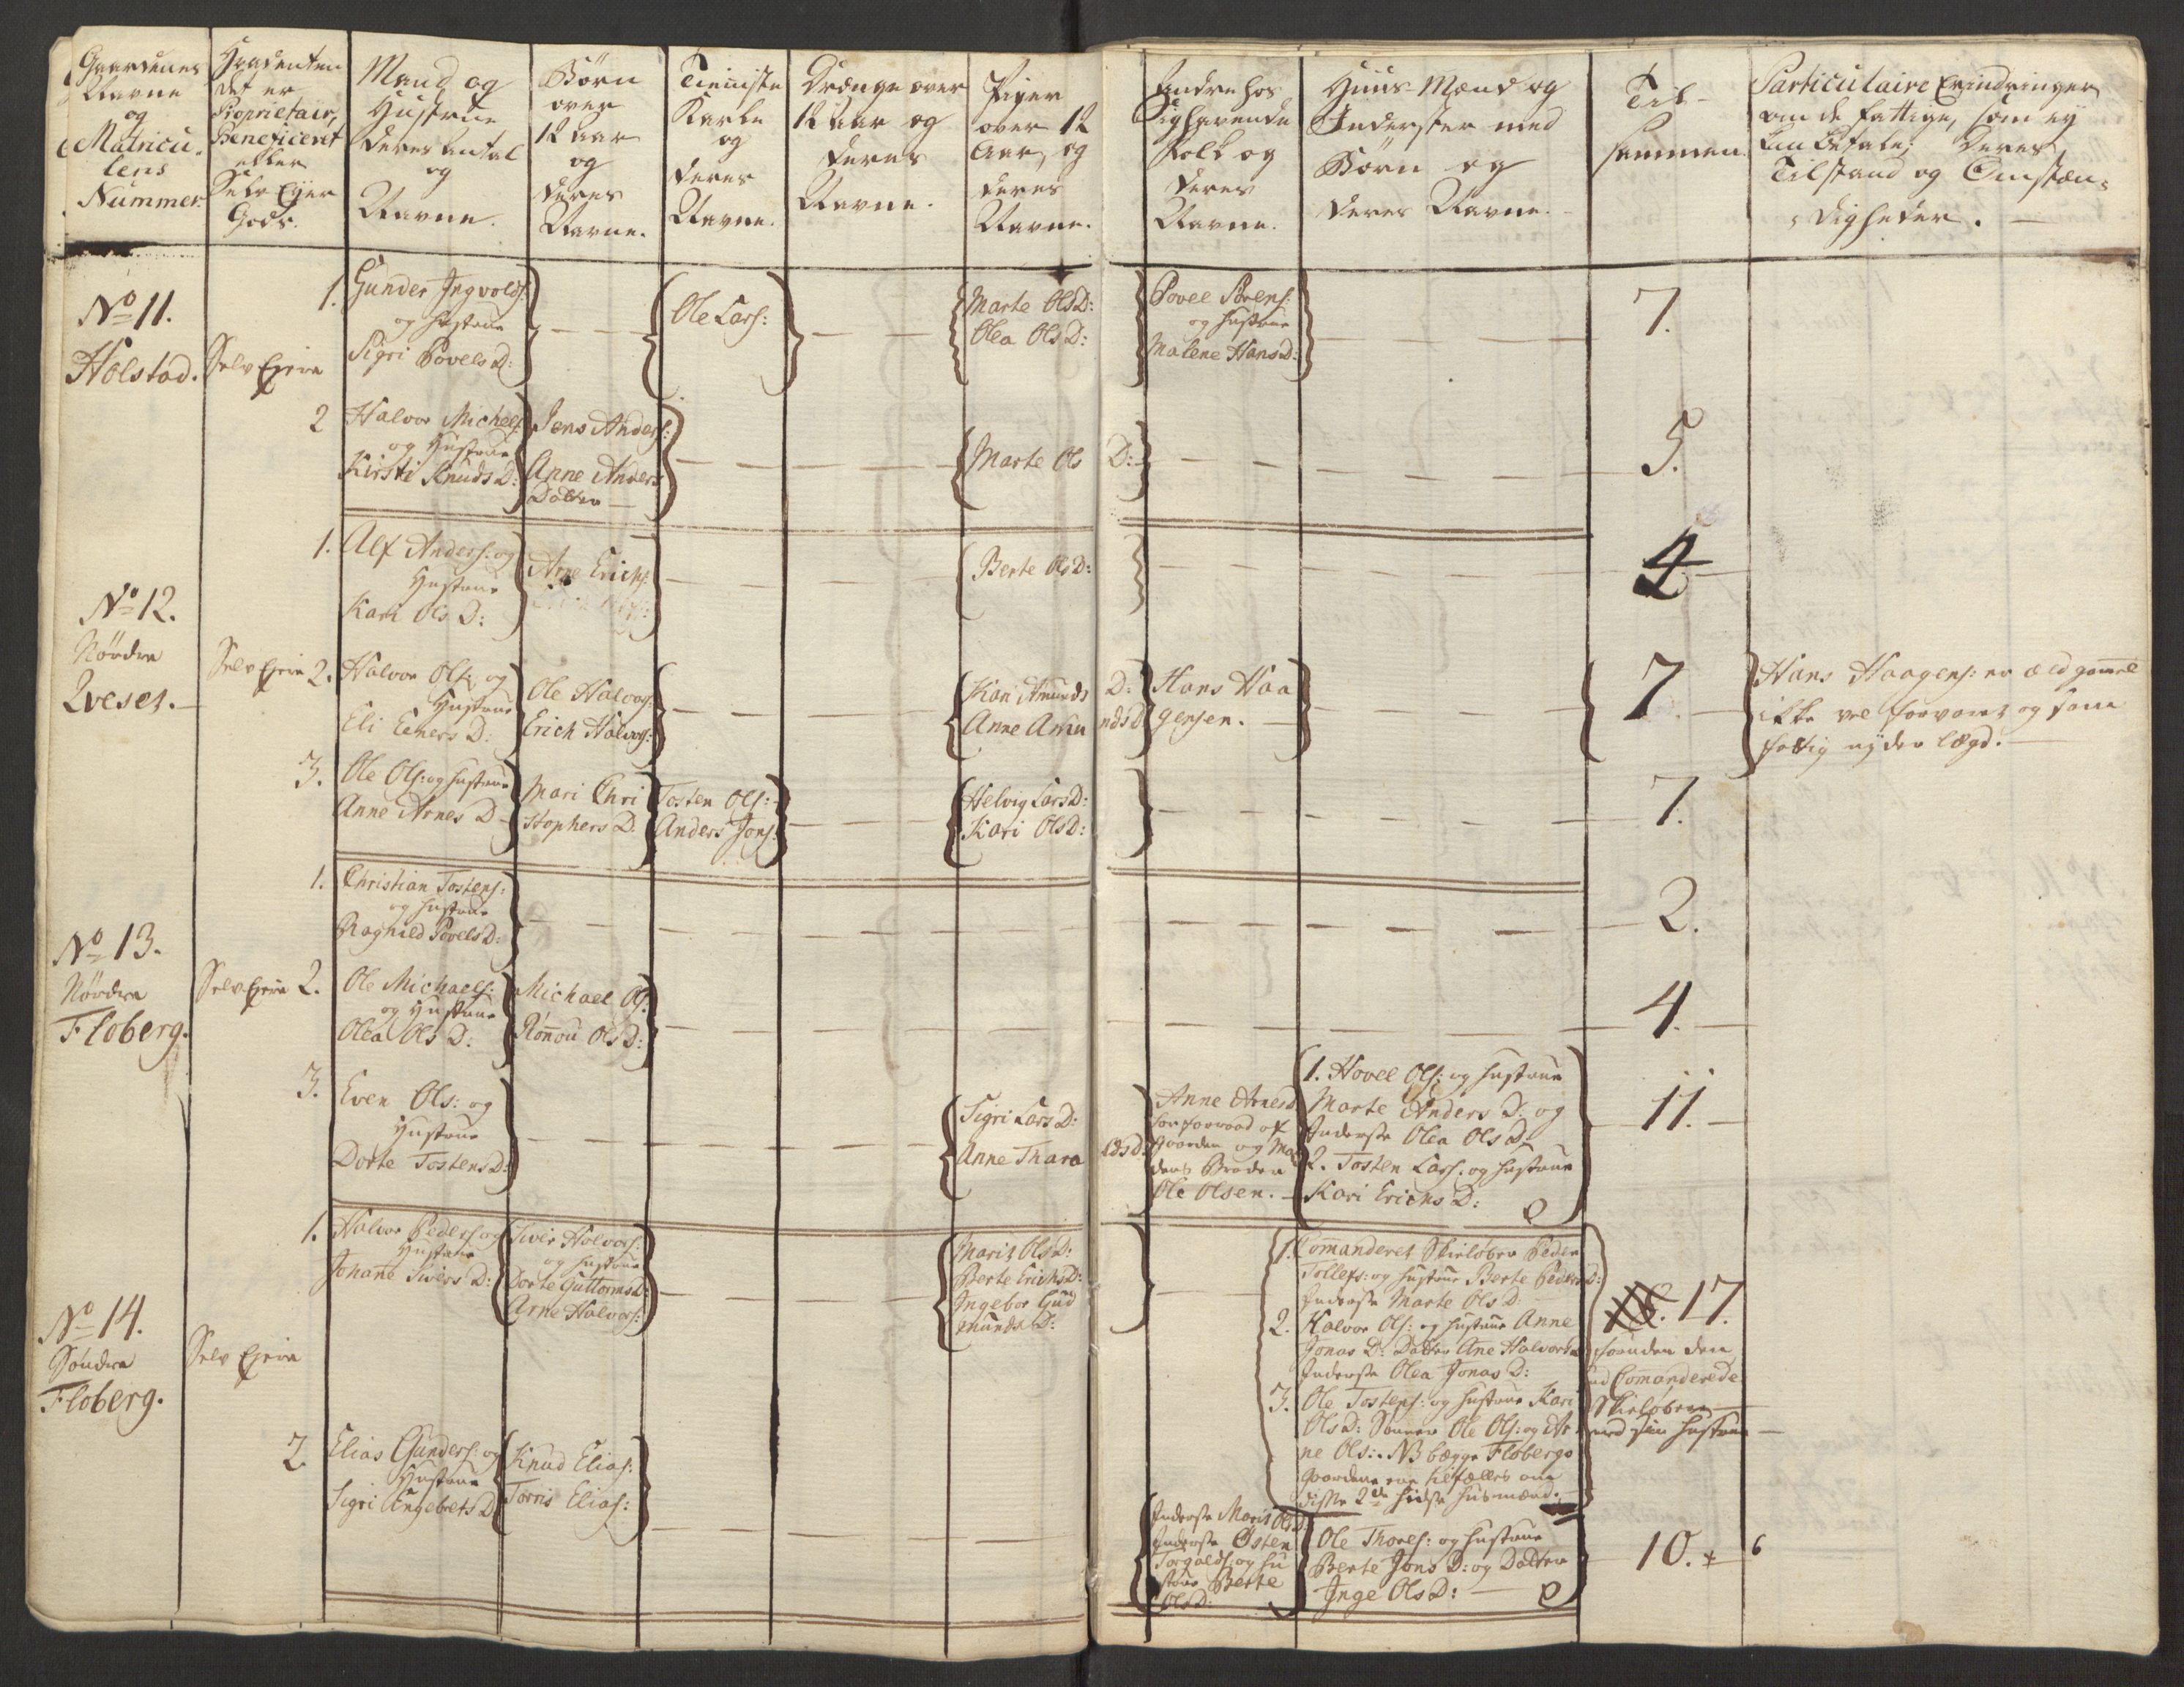 Gaardenes
Navne
og
Matricu-
lens
Nummer.
Hvadenten
det er
Proprietair,
Beneficert
eller
Selv Ejer
Gods.
Mand og
Hustrue
deres Antal
og
Navne.
Børn
over
12 Aar
og
deres
Navne.
Tieniste
Karle
og
deres
Navne.
Drænge over
12 Aar og
deres
Navne.
Piger
over 12
Aar, og
deres
Navne.
Andre hos
sig havende
Folk og
deres
Navne.
Huus Mænd og
Inderster med
Børn og
deres Navne.
Til-
sammen.
Particulaire Erindringer
om de fattige, som ey
kan betale; deres
Tilstand og Omstæn-
digheder.
No 11.
Holstad.
Selv Ejere
1. Gunder Ingvolds:
og hustrue
Sigri Povels D:
Ole Lars:
Marte Ols D:
Olea Ols D:
Povel Sørens:
og hustrue
Malene Hans D:
7.
2 Halvor Michels:
og Hustrue
Kirsti Knuds D:
Jens Anders:
Anne Anders
Datter
Marte Ols D:
5.
No 12.
Nordre
Qveset.
Selv Ejere
1. Alf Anders: og
Hustrue
Kari Ols D:
Arne Erichs:
Berte Ols D:
4
2. Halvor Ols: og
Hustrue
Eli Eeners D:
Ole Halvors:
Erich Halvors:
Kari Amunds D:
Anne Amu nds D
Hans Haa
gensen.
7.
Hans Haagens: er ældgamel
ikke vel forvaret og som
fattig nyder lægd.
3. Ole Ols: og hustrue
Anne Arnes D
Mari Chri
stophers D.
Tosten Ols:
Anders Jons:
Helvig Lars D:
Kari Ols D:
7.
No 13.
Nordre
Floberg.
Selv Ejere
1. Christian Tostens:
og hustrue
Ragnild Povels D:
2.
2. Ole Michaels:
og Hustrue
Olea Ols D:
Michael Ols:
Rønnou Ols D:
4.
3. Even Ols: og
Hustrue
Dorte Tostens D:
Sigri Lars D:
Anne Thara lds D:
Anne Arnes D
for forraad af
Gaarden og Man
dens Broder
Ole Olsen.
1. Hovel Ols: og hustrue
Marte Anders D: og
Inderste Olea Ols D:
2. Tosten Lars: og hustrue
Kari Erichs D:
11.
No 14.
Søndre
Floberg.
Selv Ejere
1. Halvor Peders: og
Hustrue
Johanne Sivers D:
Siver Halvors:
og hustrue
Dorte Guttorms D:
Arne Halvors:
Marit Ols D:
Berte Erichs D:
Ingebor Gud
munds D:
1. Comanderet Skieløber Peder
Tollefs: og hustrue Berte Peders D:
Inderste Marte Ols D:
2. Halvor Ols: og hustrue Anne
Jonas D: Datter Ane Halvors D
Inderste Olea Jonas D:
3. Ole Tostens: og hustrue Kari
Ols D: Sønner Ole Ols: og Ar
ne Ols: NB begge Flobergs
Gaardene ere tilfælles om
disse 2de sidste husmænd.
17.
foruden den
ud Comanderede
Skieløber
med sin hustrue
2. Elias Gunders: og
Hustrue
Sigri Engebrets D
Knud Elias:
Torris Elias:
Inderste Marit Ols D:
Inderste Østen
Torgalds: og hu
strue Berte
Ols D:
Ole Thores: og hustrue
Berte Jons D: og Datter
Inge Ols D:
10.
6